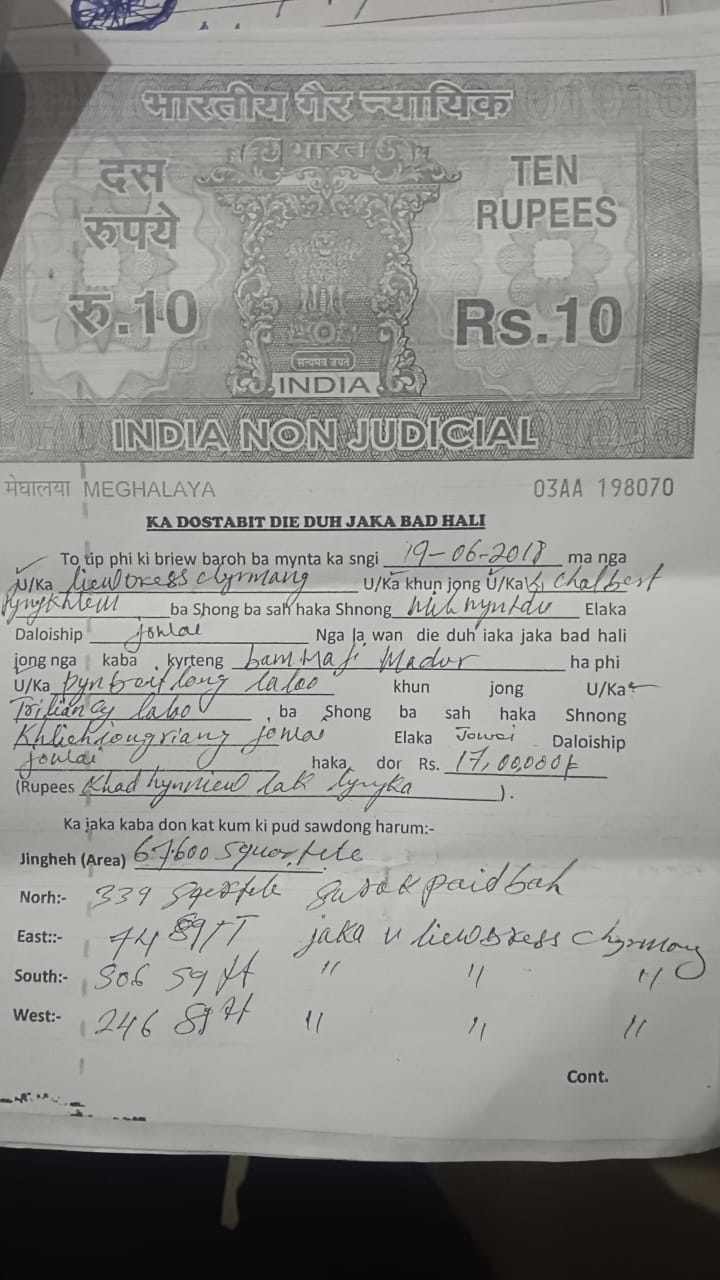 भारतीय गैर न्यायिक
भारत
दस
रुपये
रु.10
TEN
RUPEES
Rs.10
सत्यमेव जयते
INDIA
INDIA NON JUDICIAL
मेघालया MEGHALAYA 03AA 198070
KA DOSTABIT DIE DUH JAKA BAD HALI
To tip phi ki briew baroh ba mynta ka sngi 19-06-2018 ma nga
U/Ka liewbress chyrmang U/Ka khun jong U/Ka chalbest
Pyngkhlem ba Shong ba sah haka Shnong Elaka
Daloiship Jowai Nga la wan die duh iaka jaka bad hali
jong nga kaba kyrteng bam Maji Madur ha phi
U/Ka pynbeit long laloo khun jong U/Ka
Triliancy laloo, ba Shong ba sah haka Shnong
Khliehtongriang jowai Elaka Jowai Daloiship
jowai haka dor Rs. 17,00,000/
(Rupees Khad hynniew lak tyngka).
Ka jaka kaba don kat kum ki pud sawdong harum:-
Jingheh (Area) 67600
Norh:- 339 paidbah
East::- 74 jaka u liewbress chyrmang
South:- 306 sq ft " " "
West:- 246 sq ft " " "
Cont.